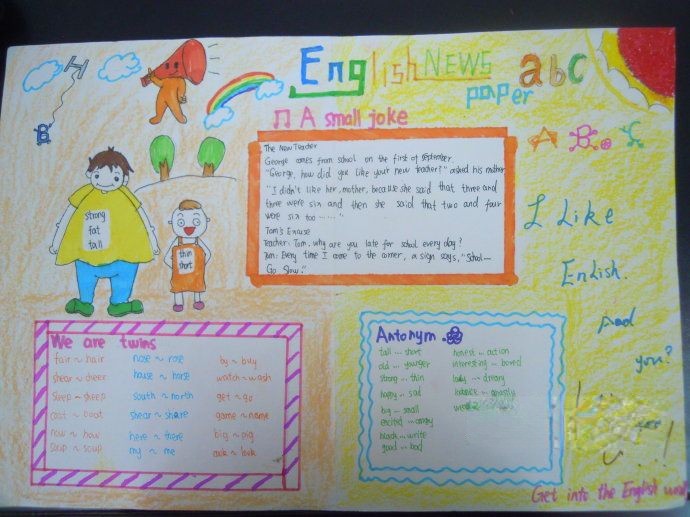 English NEWS
paper
abc
A small joke
A B C
The New Teacher
George comes from school on the first of September.
"George, how did you like your new teacher?" asked his mother
"I didn't like her, mother, because she said that three and
three were six and then she said that two and four
were six too ......"
Tom's Excuse
Teacher: Tom, why are you late for school every day?
Tom: Every time I come to the corner, a sign says, "School—
Go Slow."
strong
fat
tall
thin
short
I Like
English.
And
you?
We are twins
fair ~ hair
shear ~ cheer
sleep ~ sheep
coat ~ boat
now ~ how
soup ~ soup
nose ~ rose
house ~ horse
south ~ north
shear ~ share
here ~ there
my ~ me
by ~ buy
watch ~ wash
get ~ go
game ~ name
big ~ pig
look
Antonym
tall --- short
old --- younger
strong --- thin
happy --- sad
big --- small
excited --- angry
black --- write
good --- bad
honest --- action
interesting --- bored
lady --- dreamy
Get into the English